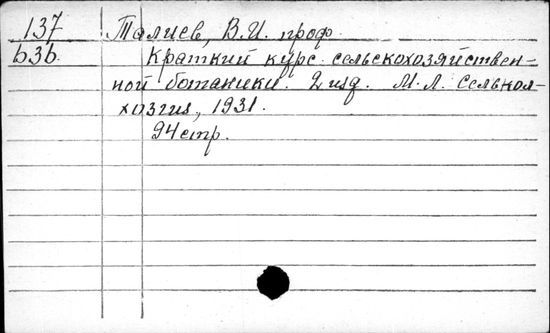 137 Талиев, В.И. проф.
636. Краткий курс сельскохозяйствен-
ной ботаники. 2 изд. М.Л. Селькол-
хозгиз, 1931.
94 стр.